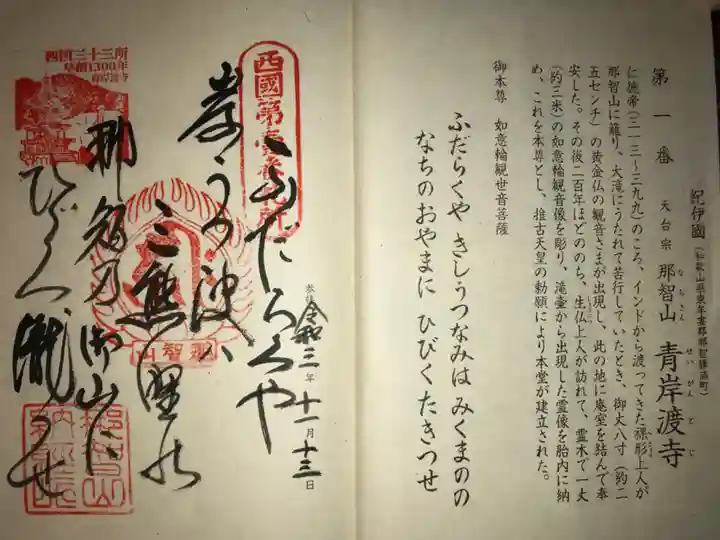 紀伊國(和歌山県東牟婁郡那智勝浦町)
第一番 天台宗 那智山 青岸渡寺
なちさん せいがんとじ
仁徳帝(三一三〜三九九)のころ、インドから渡ってきた裸形上人が
那智山に籠り、大滝にうたれて苦行していたとき、御丈八寸(約二
五センチ)の黄金仏の観音さまが出現し、此の地に庵室を結んで奉
安した。その後二百年ほどののち、生仏上人が訪れて、霊木で一丈
(約三米)の如意輪観音像を彫り、滝壷から出現した霊像を胎内に納
め、これを本尊とし、推古天皇の勅願により本堂が建立された。
御本尊 如意輪観世音菩薩
ふだらくや きしうつなみは みくまのの
なちのおやまに ひびくたきつせ
令和三年十一月十三日
西國第壹番札所
ふだらくや
岸うつ波ハ
三熊野の
那智乃御山に
ひびく瀧つせ
那智山
西国三十三所
草創1300年
青岸渡寺